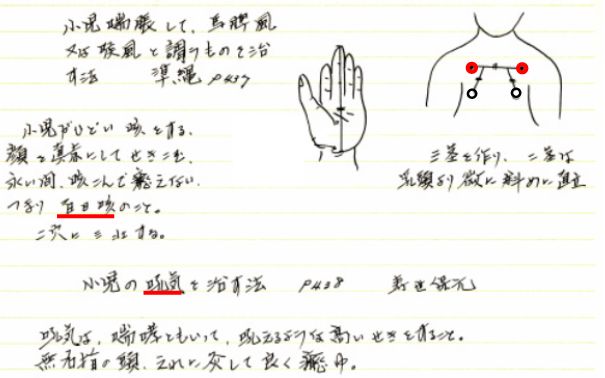 小児喘脹して、馬脾風
又は喉風と謂うものを治
す法　準縄 P437
小児がひどい咳をする、
顔を真赤にしてせきこむ、
永い間、咳こんで癒えない、
つまり百日咳のこと。
二穴に三壮する。
三荃を作り、二荃は
乳頭より微に斜めに直立
小児の吼気を治す法　P438　寿世保元
吼気は、喘哮ともいって、吼えるような高いせきをすること。
無名指の頭、これに灸して良く癒ゆ。